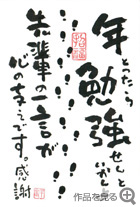 年とったら
勉強せんと
いかん
!!!!!!!
先輩の一言が
心の支えです。感謝
作品を見る